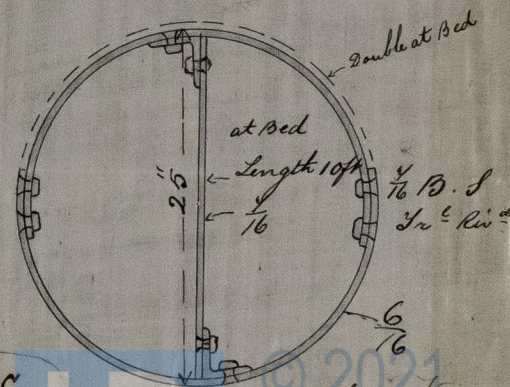 Double at Bed
at Bed
Length 10ft
25"
7/16
7/16 B. S
Trᵉ Rivᵈ
6/16
© 2021